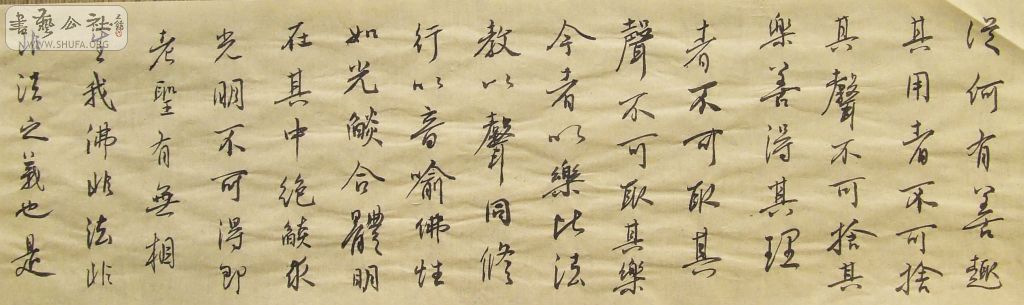 書藝公社
WWW.SHUFA.ORG
從何有善趣
其用者不可捨
其聲不可捨其
樂善得其理
者不可取其
聲不可取其樂
今者以樂比法
教以聲同修
行以音喻佛性
如光燄合體明
在其中絕燄求
光明不可得即
老聖有無相
生我佛非法非
非法之義也是